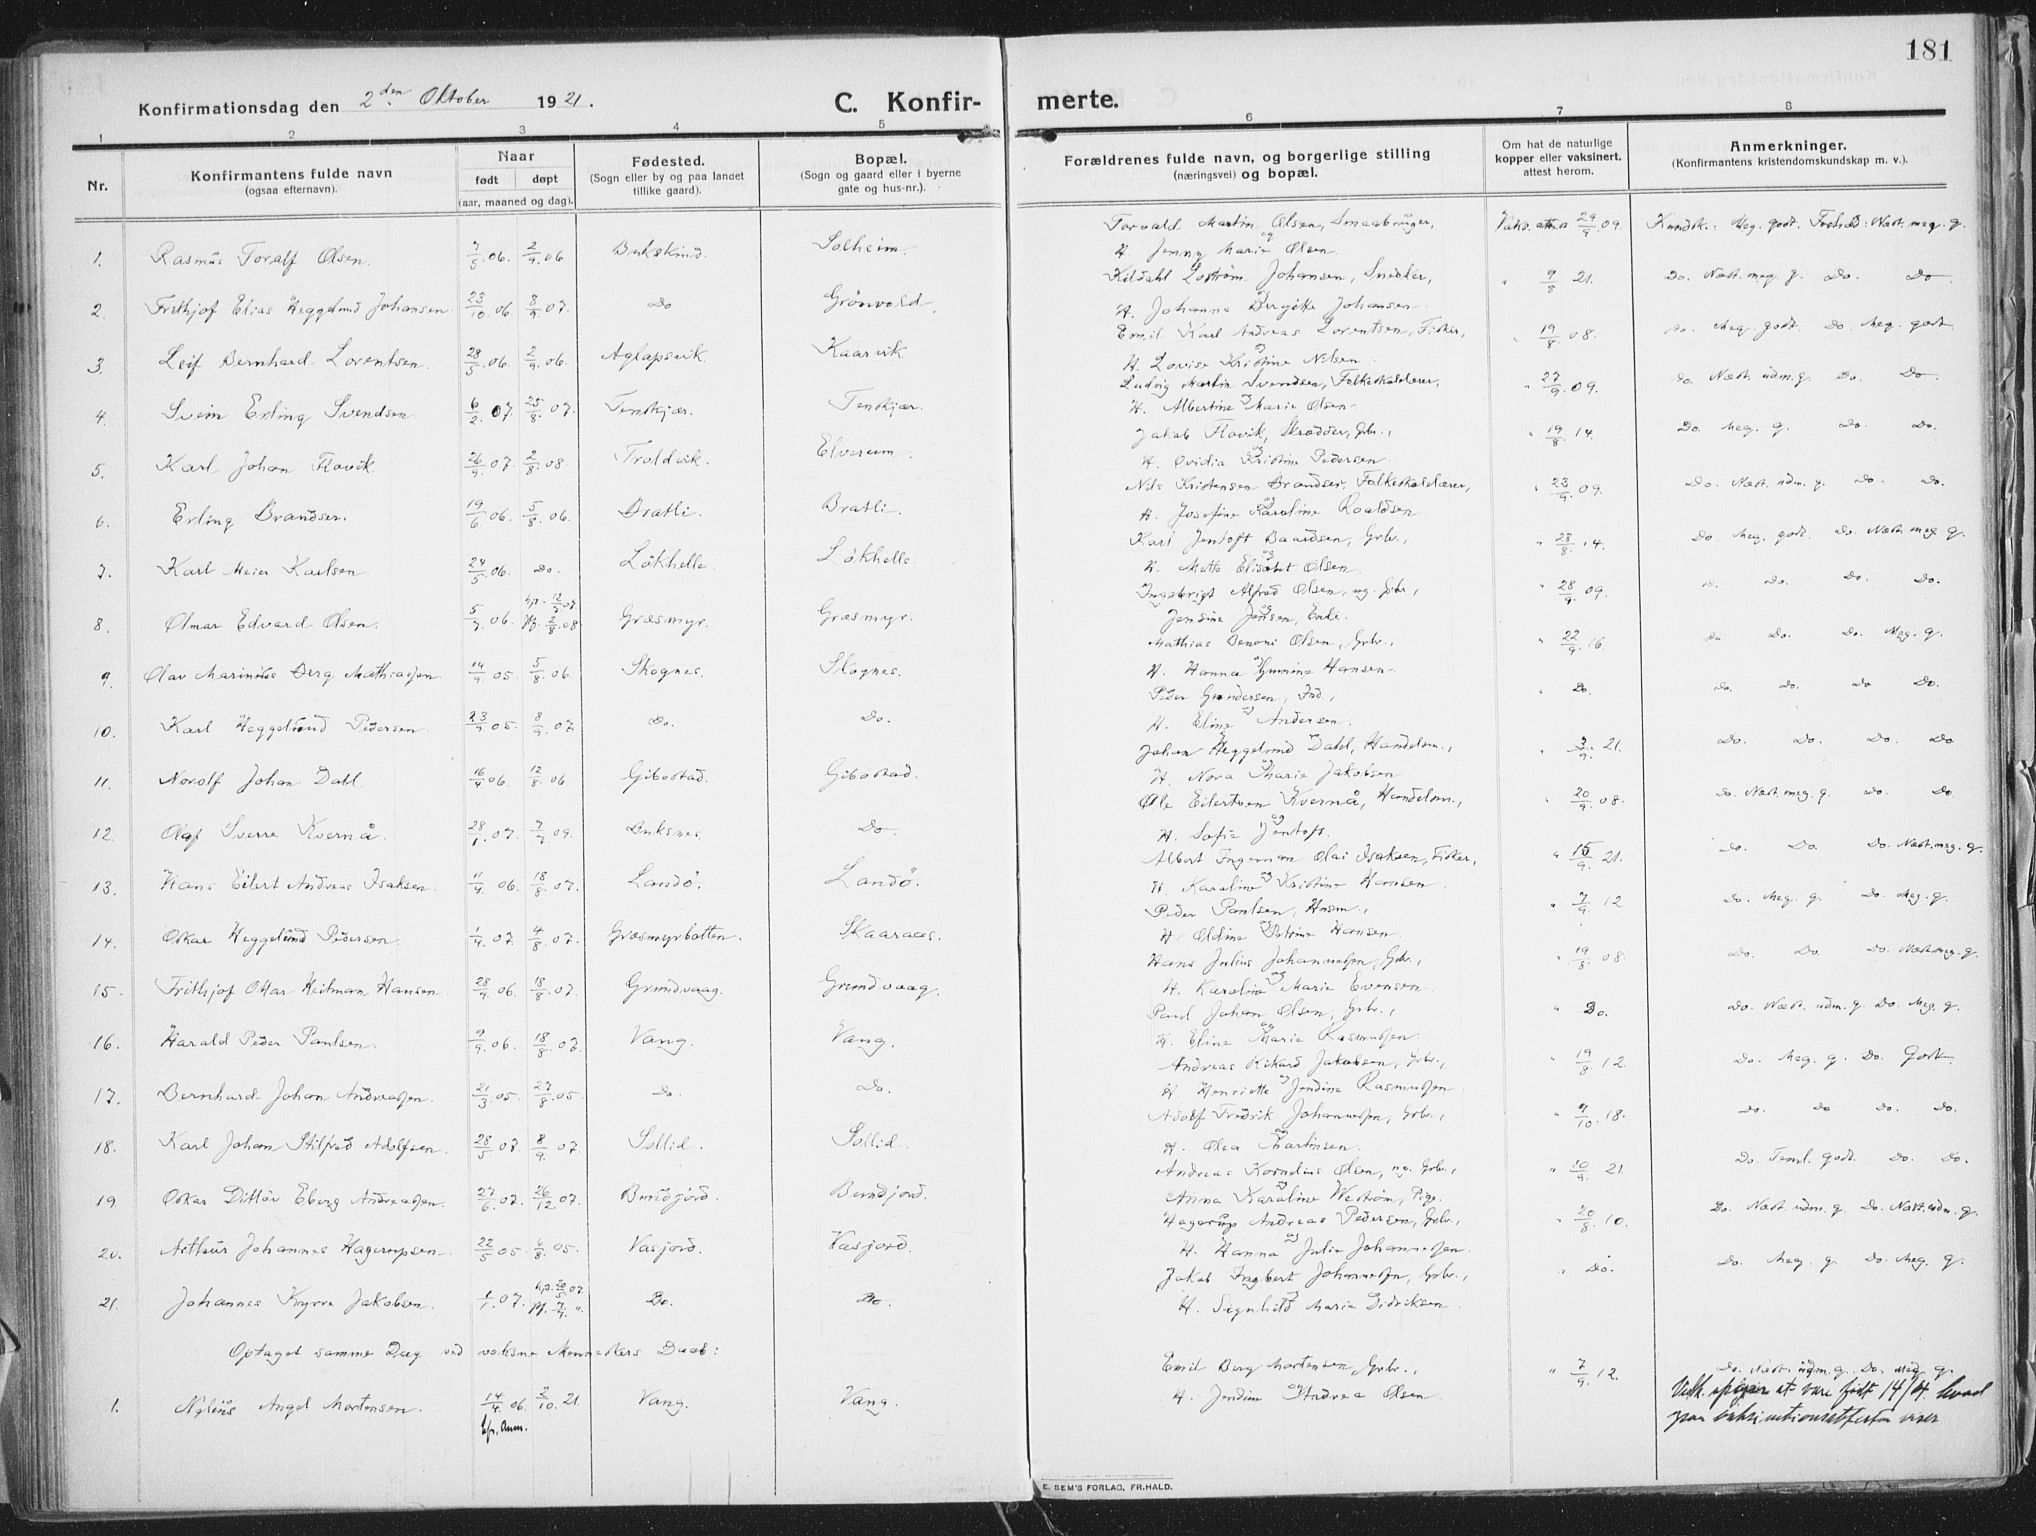 181
Konfirmationsdag den 2den Oktober 1921.
C. Konfirmerte.
1 2 3 4 5 6 7 8
Nr.
Konfirmantens fulde navn
(ogsaa efternavn).
Naar
født døpt
(aar, maaned og dag).
Fødested.
(Sogn eller by og paa landet
tillike gaard).
Bopæl.
(Sogn og gaard eller i byerne
gate og hus-nr.).
Forældrenes fulde navn, og borgerlige stilling
(næringsvei) og bopæl.
Om hat de naturlige
kopper eller vaksinert,
attest herom.
Anmerkninger.
(Konfirmantens kristendomskundskap m. v.).
1. Rasmus Toralf Olsen. 06. 2/9 06 Solheim. Torvald Martin Olsen, Smaabruger, 29/9 09. Kundsk.: Meg. godt. Næst. meg. g.
H. Jenny Marie Olsen
2. Frithjof Elias Heggelund Johansen 23/10 06. 8/9 07. Do Grönvold. Johansen, Snedker, " 9/8 21. Do. Næst. meg. g. Do. Do
H. Johanne Johansen
3. Leif Bernhard Lorentsen. 28/5 06. 2/9 06. Aglapsvik Kaarvik Emil Karl Andreas Lorentsen, Fisker, " 19/8 08. Do. Meg. godt. Do. Meg. godt
H. Lovise Kristine Nilsen
4. Svein Erling Svendsen. 6/2 07. 25/8 07. Tenskjær. Tenskjær. Ludvig Martin Svendsen, Folkeskolelærer, " 27/9 09. Do. Næst. udm. g. Do. Do.
H. Albertine og Marie Olsen
5. Karl Johan Flovik 26/9 07. 2/8 08. Troldvik. Elvereim. Jakob Flovik, Skrædder, Grbr., " 19/8 14. Do. Meg. g. Do. Do.
H. Ovidia Kristine Pedersen
6. Erling Brandser. 19/6 06. 5/8 06. Bratli. Bratli. Nils Kristensen Brandser, Folkeskolelærer, " 23/9 09. Do. Næst. udm. g. Do. Do.
H. Josefine Karoline Roaldsen
7. Karl Meier Karlsen 24/5 06. Do. Lökhelle. Lökhelle. Karl Jentoft Baardsen, Grbr., " 28/8 14. Do. Meg. godt. Do. Næst meg g.
H. Mette Elisabet Olsen
8. Olmar Edvard Olsen. 5/7 06. Græsmyr. Græsmyr. Ingebrigt Alfred Olsen, ug. Grbr., " 28/9 09. Do. Do. Do.
Jensine Jensen, Enke.
9. Olav Marinius Berg Mathiassen. 14/9 05 5/8 06. Skognes. Skognes. Mathias Benoni Olsen, Grbr., " 22/9 16. Do Do. Do. Meg. g.
H. Hanna Hansen
10. Karl Heggelund Pedersen 23/9 05. 8/9 07. Do. Do. Peder Gundersen, Ind., " Do. Do. Do. Do Do.
H. Eline og Andersen.
11. Norolf Johan Dahl. 16/4 06. 12/8 06 Gibostad. Gibostad. Johan Heggelund Dahl, Handelsm., 21. Do. Do. Do. Do
H. Nora Marie Jakobsen
12. Olaf Sverre Kvernå. 28/1 07. 09. Buksnes. Do Ole Eilertsen Kvernå, Handelsm., " 20/9 08. Do. Næst. meg. g. Do. Do.
H. Sofie Jentoft.
13. Hans Eilert Andreas Isaksen. 11/9 06 18/8 07. Landö. Landö. Albert Ingeman Olai Isaksen, Fisker, " 15/9 21. Do. Do. Do. Næst. meg. g.
H. Karoline og Kristine Hansen
14. Oskar Heggelund Pedersen. 1/9 07. 4/8 07. Græsmyrbotten. Peder Paulsen, Husm., " 7/9 12 Do. Meg. g. Do. Meg. g.
H. Oldine Petrine Hansen
15. Frithjof Ottar Heitman Hansen 28/9 06. 18/8 07. Grundvaag. Grundvaag. Hans Julius Johannessen, Grbr., " 19/8 08. Do. Do. Do. Næst. meg. g.
H. Karoline og Marie Evensen
16. Harald Peder Paulsen. 9/9 06. 18/8 07. Vang. Vang. Paul Johan Olsen, Grbr., " Do. Do. Næst. udm. g. Do. Meg. g.
H. Eline Marie Rasmussen
17. Bernhard Johan Andreassen. 21/3 05. 27/8 05. Do. Do. Andreas Rikard Jakobsen, Grbr., " 19/8 12. Do. Meg. g. Do. Godt.
H. Henriette og Jendine Rasmussen
18. Karl Johan Stilfred Adolfsen 28/5 07. 8/9 07. Sollid. Sollid. Adolf Fredrik Johannessen, Grbr., " 9/10 18. Do. Do. Do. Do.
H. Olea Martinsen
19. Oskar Ditløv Eberg Andreassen. 27/6 07. 26/12 07. Andreas Kornelius Olsen, ug. Grbr., " 10/9 21. Do. Teml. godt. Do. Do.
Anna Karoline Westrøm, Pige.
20. Arthur Johannes Hagerupsen 22/5 05. 6/8 05. Vasjord. Vasjord. Hagerup Andreas Pedersen, Grbr., " 20/8 10. Do. Næst. udm. g. Do. Næst. udm. g.
H. Hanna og Julie Johannessen
21. Johannes Kyrre Jakobsen. 1/1 07. Do. Do. Jakob Ingbert Johannessen, Grbr., " Do. Do. Meg. g. Do. Meg. g.
H. Signhild Marie Didriksen
Optaget samme Dag ved voksne Menneskers Daab:
1. Angel Mortensen. 14/4 06. 2/10 21. Vang. Vang. Emil Berg Mortensen, Grbr., " 7/9 12. Do. Næst. udm. g. Do. Meg. g.
H. Jendine og Andrea Olsen
Efr. Anm. at være født 14/4
E. SEM'S FORLAG, FR.HALD.